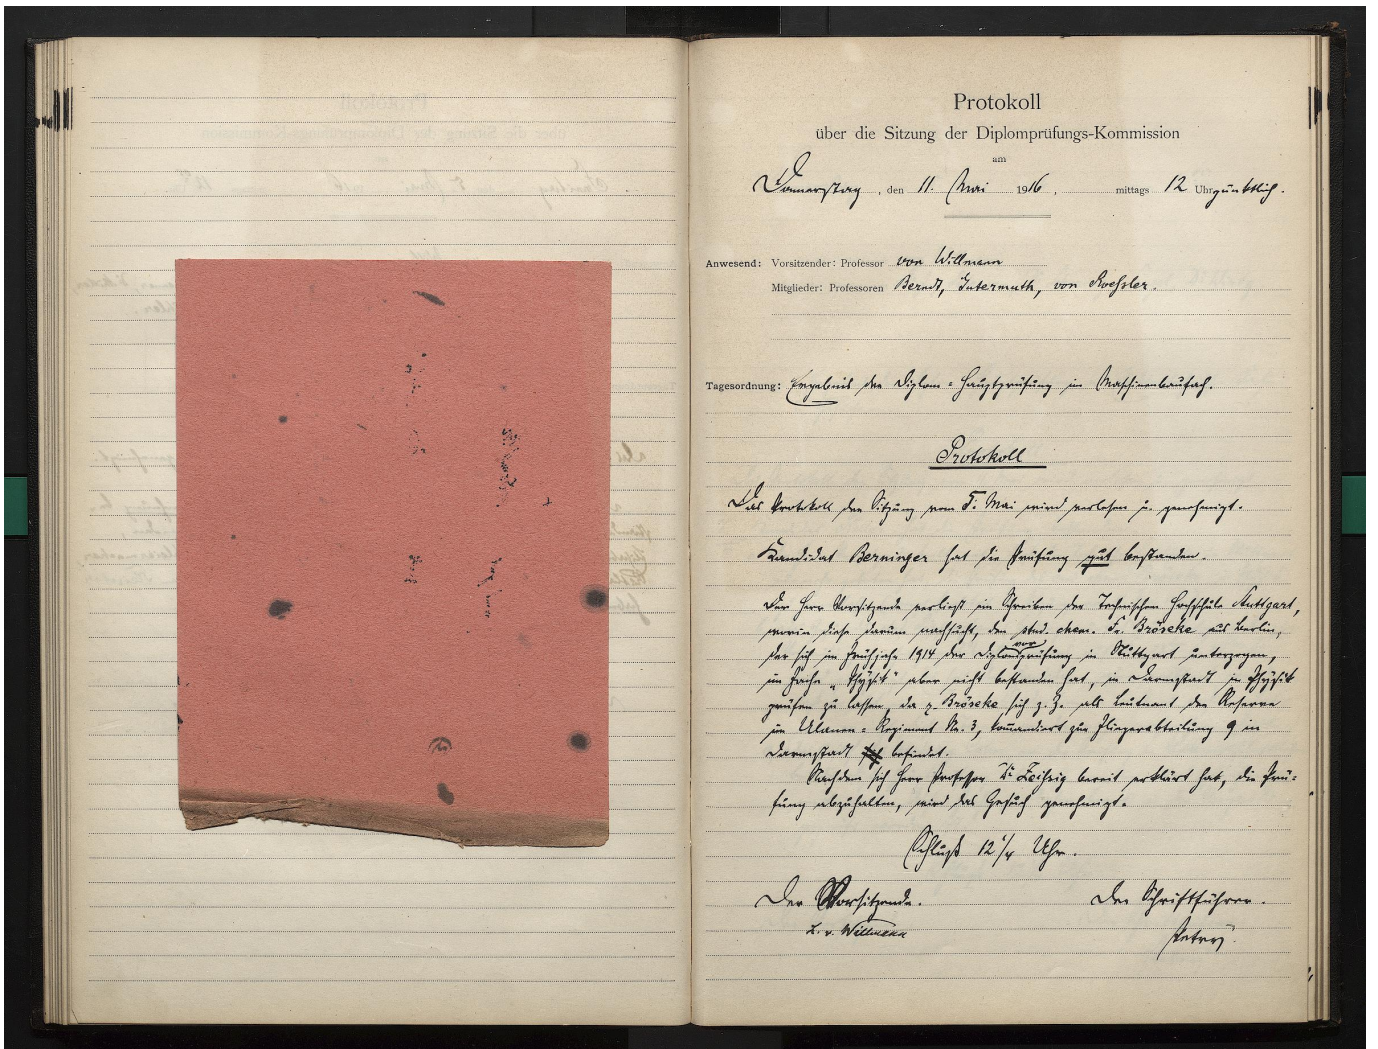 Protokoll
über die Sitzung der Diplomprüfungs-Kommission
am
Donnerstag, den 11. Mai 1916. mittags 12 Uhr pünktlich.
Anwesend: Vorsitzender: Professor von Willmann
Mitglieder: Professoren Berndt, Gutermuth, von Roeßler.
Tagesordnung: Ergebnis der Diplom-Hauptprüfung im Maschinenbaufach.
Protokoll
Das Protokoll der Sitzung vom 5. Mai wird verlesen u. genehmigt.
Kandidat Berninger hat die Prüfung gut bestanden.
Der Herr Vorsitzende verliest ein Schreiben der Technischen Hochschule Stuttgart,
worin diese darum nachsucht, den stud. chem. Fr. Bröseke aus Berlin,
der sich im Frühjahr 1914 der Diplomvorprüfung in Stuttgart unterzogen,
im Fache „Physik" aber nicht bestanden hat, in Darmstadt in Physik
prüfen zu lassen, da p. Bröseke sich z. Z. als Leutnant der Reserve
im Ulanen-Regiment Nr. 3, kommandiert zur Fliegerabteilung 9 in
Darmstadt befindet.
Nachdem sich Herr Professor Dr. Zeißig bereit erklärt hat, die Prü-
fung abzuhalten, wird das Gesuch genehmigt.
Schluß 12 1/4 Uhr.
Der Vorsitzende. Der Schriftführer.
L. v. Willmann Petry.